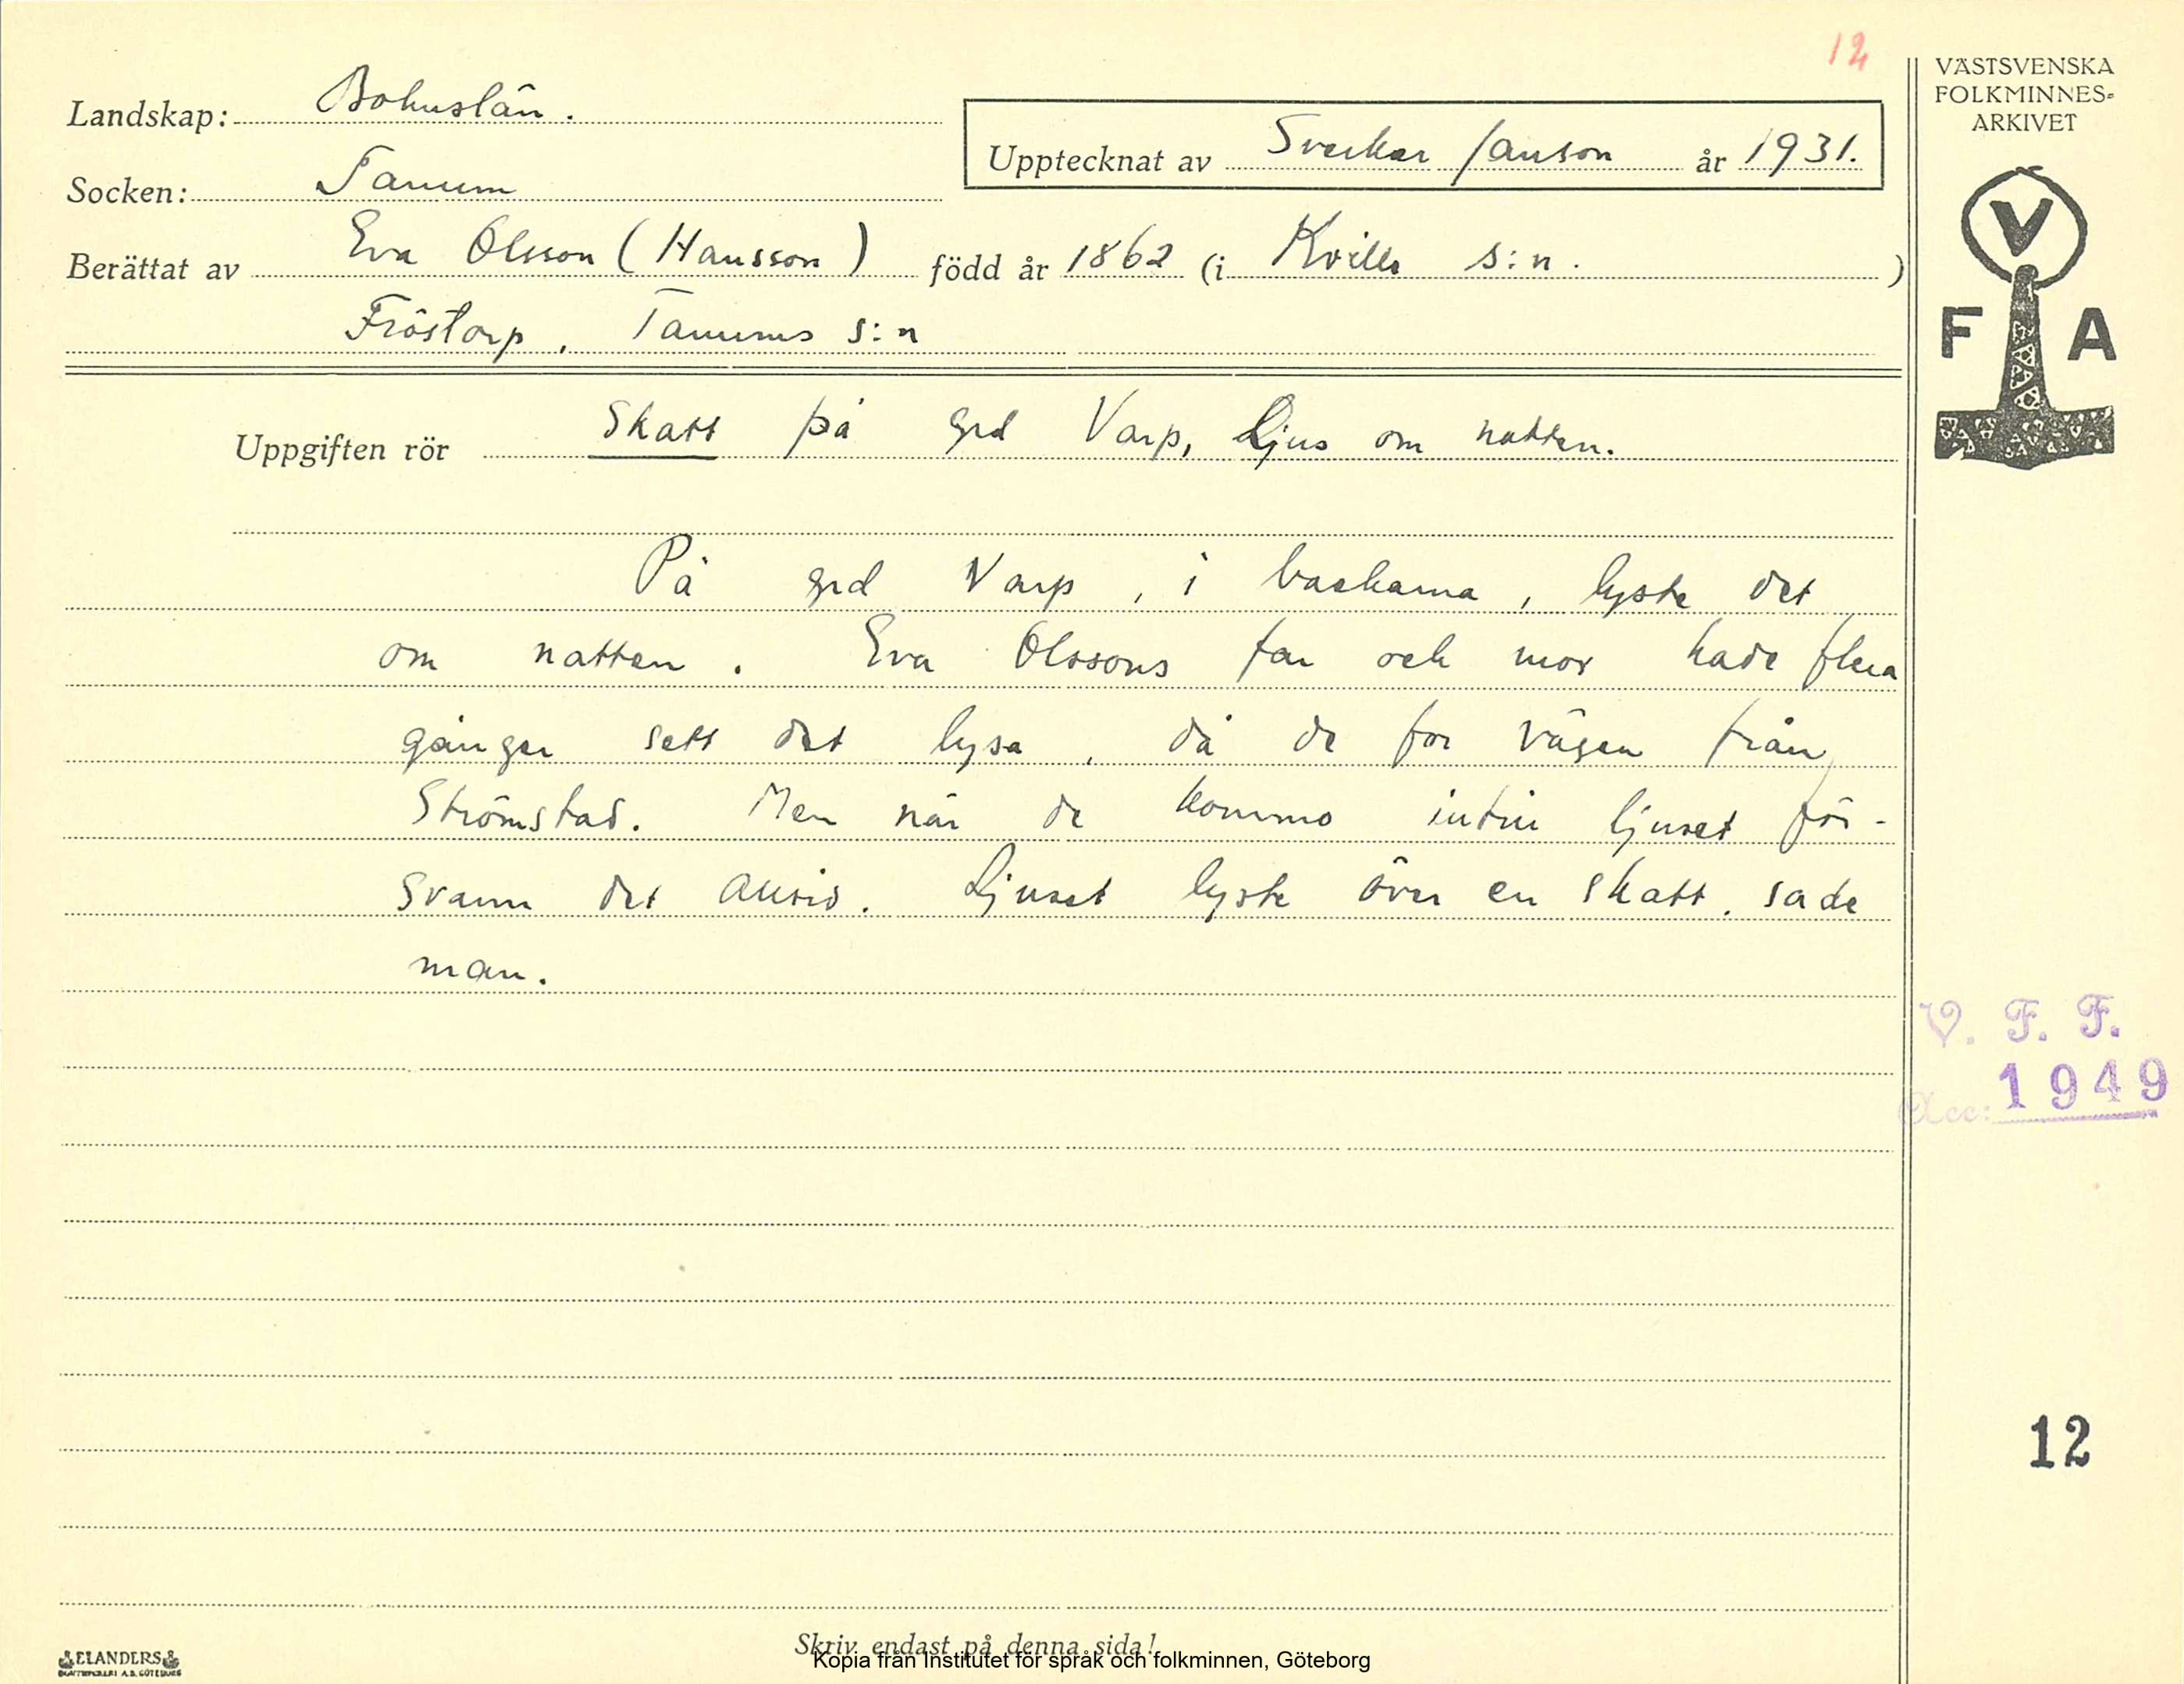 12
VÄSTSVENSKA
FOLKMINNES-
ARKIVET
Landskap: Bohuslän.
Upptecknat av Sverker Janson år 1931.
Socken: Tanum
Berättat av Eva Olsson (Hansson) född år 1862 (i Kville s:n. )
Fröstorp, Tanums s:n
V
F A
Uppgiften rör Skatt på grd Varp, Ljus om natten.
På grd Varp, i backarna, lyste det
om natten. Eva Olssons far och mor hade flera
gånger sett det lysa, då de for vägen från
Strömstad. Men när de kommo intill ljuset för-
svann det alltid. Ljuset lyste över en skatt, sade
man.
V. F. F.
Acc: 1949
12
Skriv endast på denna sida!
ELANDERS
Kopia från Institutet för språk och folkminnen, Göteborg